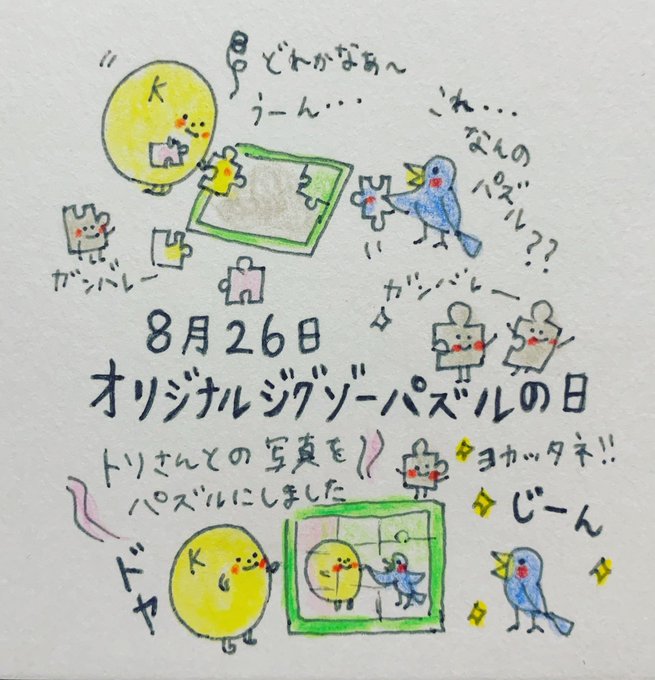 K
どれかなぁ〜
うーん・・・
これ・・・
なんの
パズル??
ガンバレー
ガンバレー
8月26日
オリジナルジグゾーパズルの日
トリさんとの写真を
パズルにしました
ヨカッタネ!!
じーん
ドヤ
K